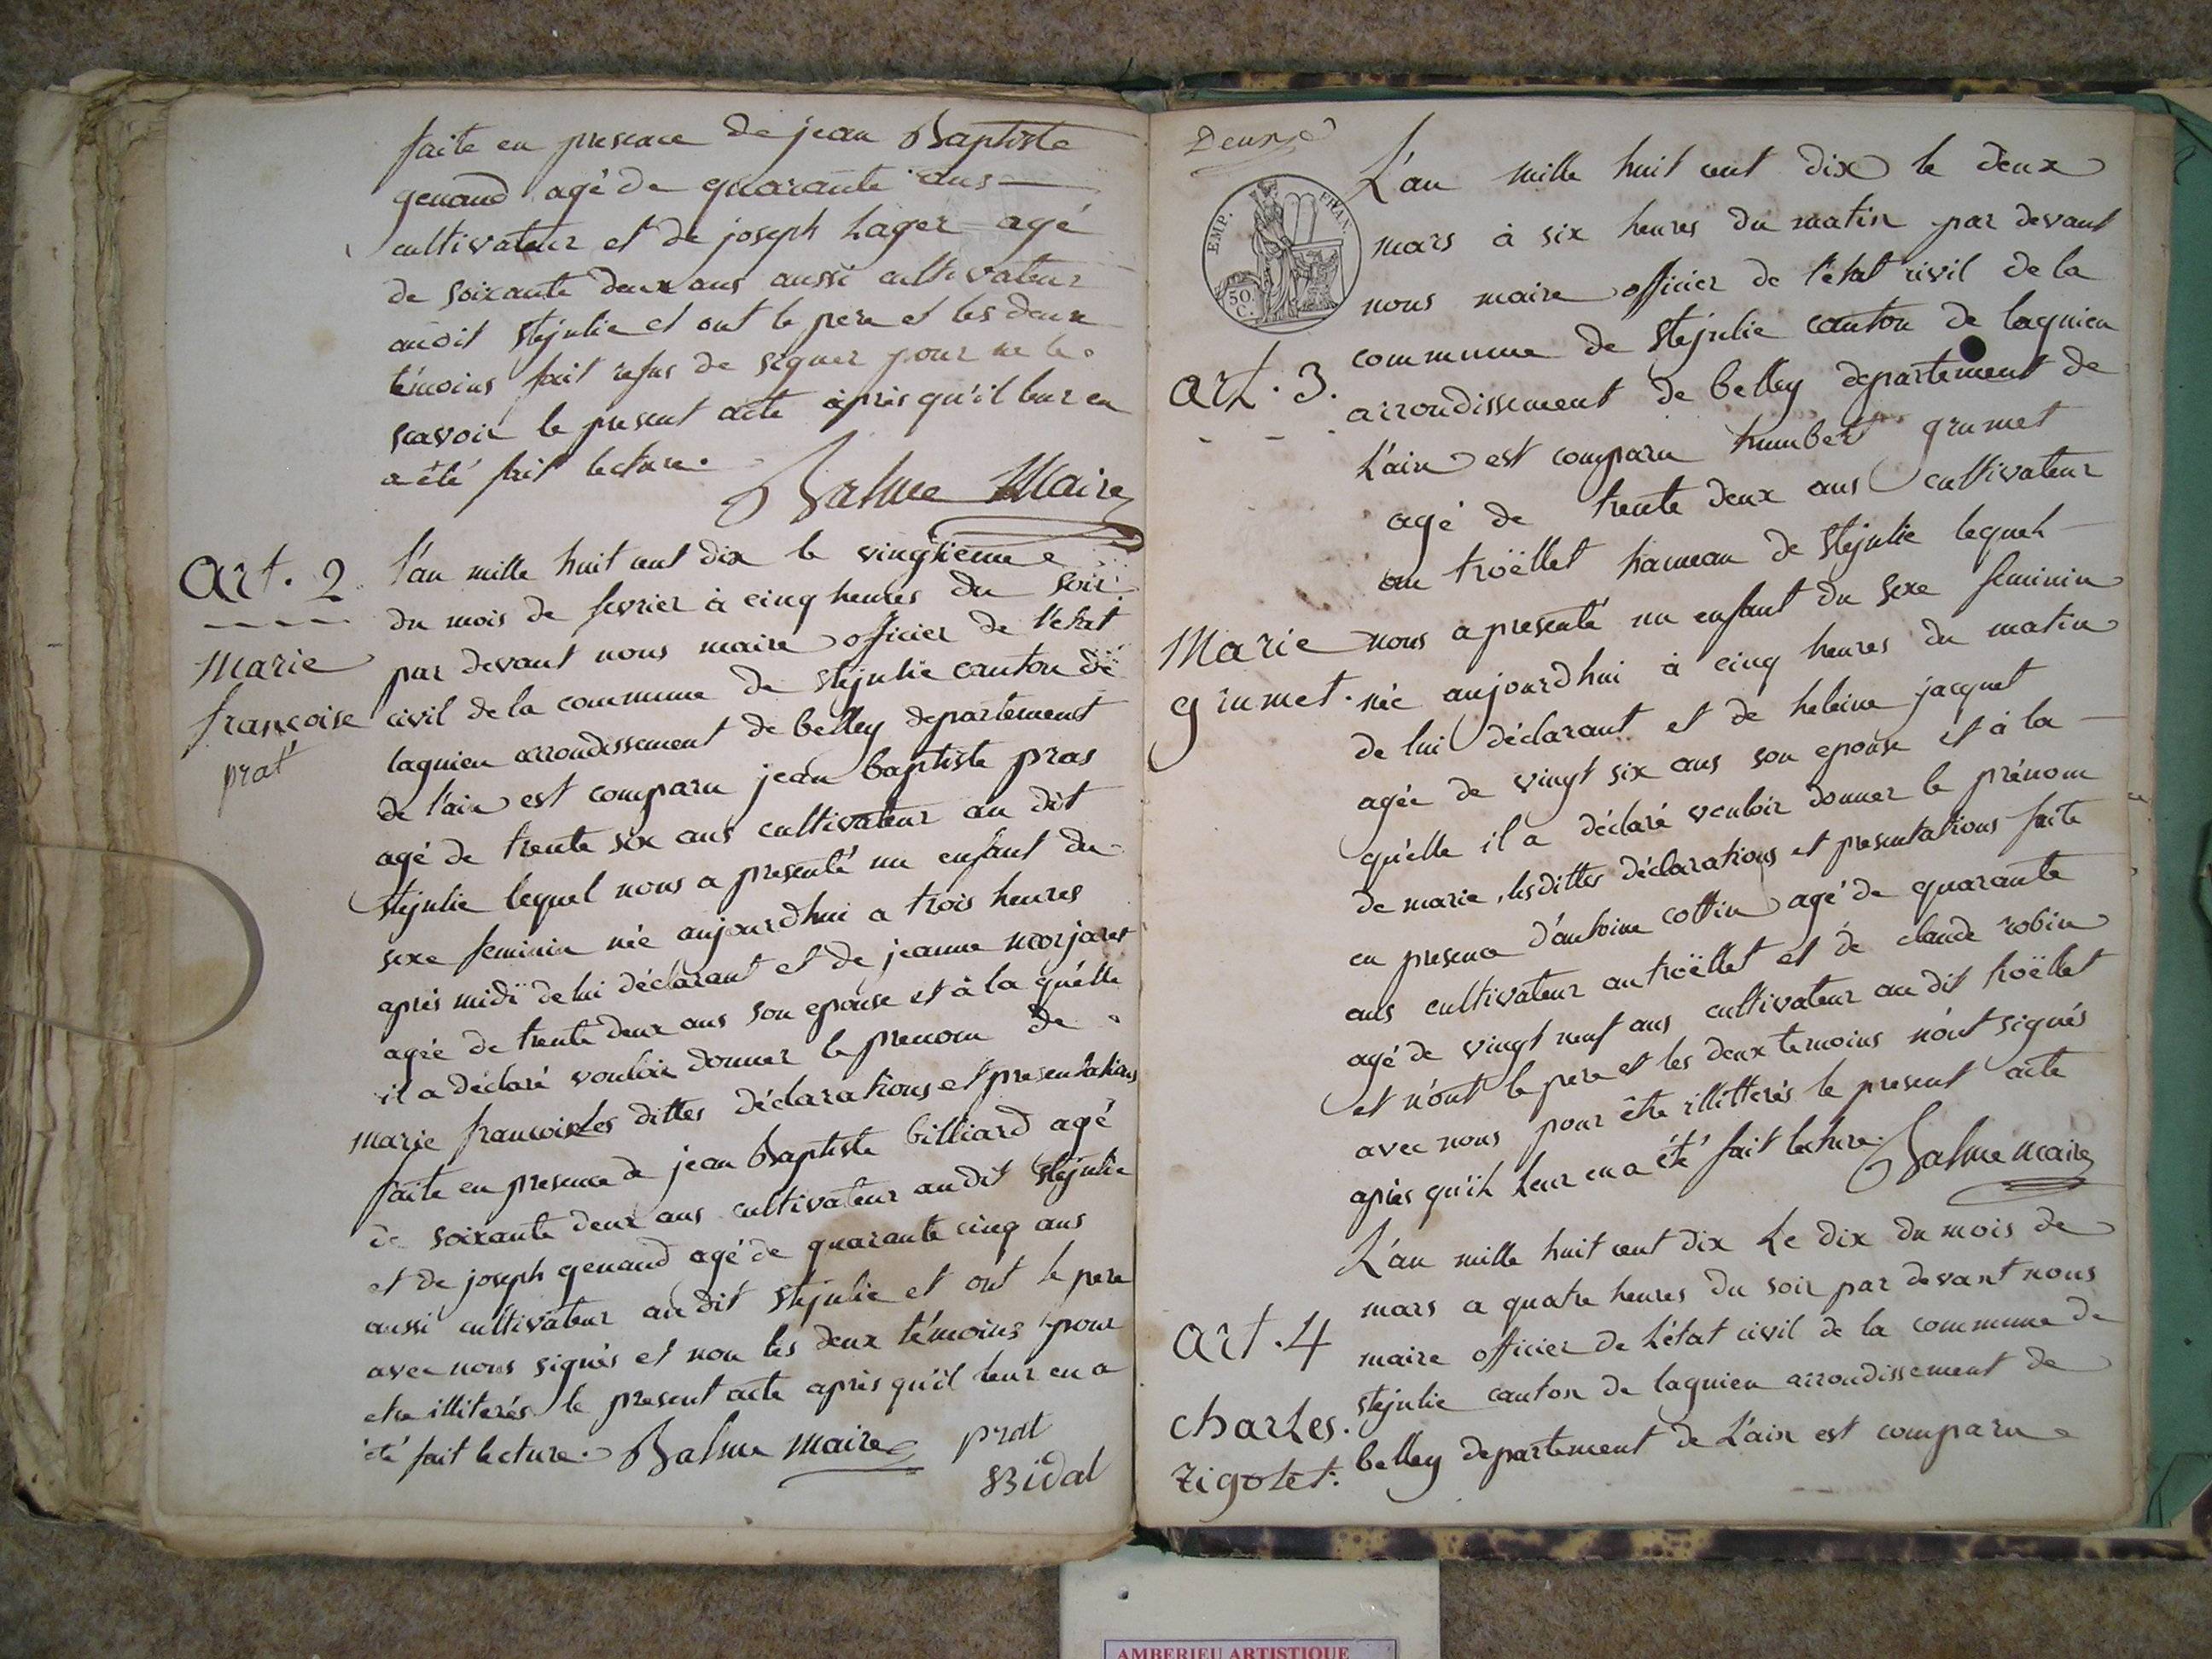 faite en presence de jean Baptiste
genand agé de quarante ans
cultivateur et de joseph hager agé
de soixante deux ans aussi cultivateur
audit stejulie et ont le pere et les deux
témoins fait refus de signer pour ne le
scavoir le present acte après qu'il leur en
a été fait lecture.
Balme Maire
art. 2
marie
françoise
prat
l'an mille huit cent dix le vingtieme
du mois de fevrier à cinq heures du soir
par devant nous maire officier de l'etat
civil de la commune de stejulie canton de
lagnieu arrondissement de belley departement
de l'ain est comparu jean baptiste pras
agé de trente six ans cultivateur au dit
stejulie lequel nous a presenté un enfant du
sexe feminin née aujourdhui a trois heures
après midi de lui déclarant et de jeanne
agée de trente deux ans son epouse et à la quélle
il a déclaré vouloir donner le prenom de
marie francoise Les dittes déclarations et presentations
faite en presence de jean Baptiste billiard agé
de soixante deux ans cultivateur audit stejulie
et de joseph genand agé de quarante cinq ans
aussi cultivateur audit stejulie et ont le pere
avec nous signés et non les deux témoins pour
etre illiterés le present acte après qu'il leur en a
été fait lecture. Balme maire prat
Bidal
Deux
EMP. FRAN.
50. C.
L'an mille huit cent dix le deux
mars à six heures du matin par devant
nous maire officier de l'état civil de la
commune de stejulie canton de lagnieu
art. 3.
arrondissement de belley departement de
L'ain est comparu humbert grumet
agé de trente deux ans cultivateur
au troëllet hameau de stejulie lequel
Marie
grumet.
nous a presenté un enfant du sexe feminin
née aujourdhui à cinq heures du matin
de lui déclarant et de heleine jacquet
agée de vingt six ans son epouse et à la
qu'elle il a déclaré vouloir donner le prénom
de marie, lesdittes déclarations et presentations faite
en presence d'antoine cottin agé de quarante
ans cultivateur au troëllet et de claude robin
agé de vingt neuf ans cultivateur au dit troëllet
et n'ont le pere et les deux temoins n'ont signés
avec nous pour être illitterés le present acte
après qu'il leur en a été fait lecture. Balme maire
L'an mille huit cent dix Le dix du mois de
mars a quatre heures du soir par devant nous
art. 4
maire officier de L'état civil de la commune de
stejulie canton de lagnieu arrondissement de
charles.
rigolet.
belley departement de L'ain est comparu
AMBERIEU ARTISTIQUE